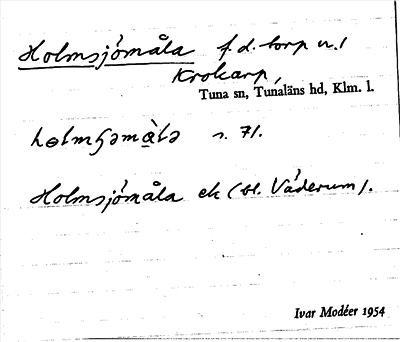 Holmsjómåla f.d. torp u./
Krokarp,
Tuna sn, Tunaläns hd, Klm. l.
hɵlmʃəmа̀lə s. 71.
Holmsjómåla ek (bl. Váderum).
Ivar Modéer 1954